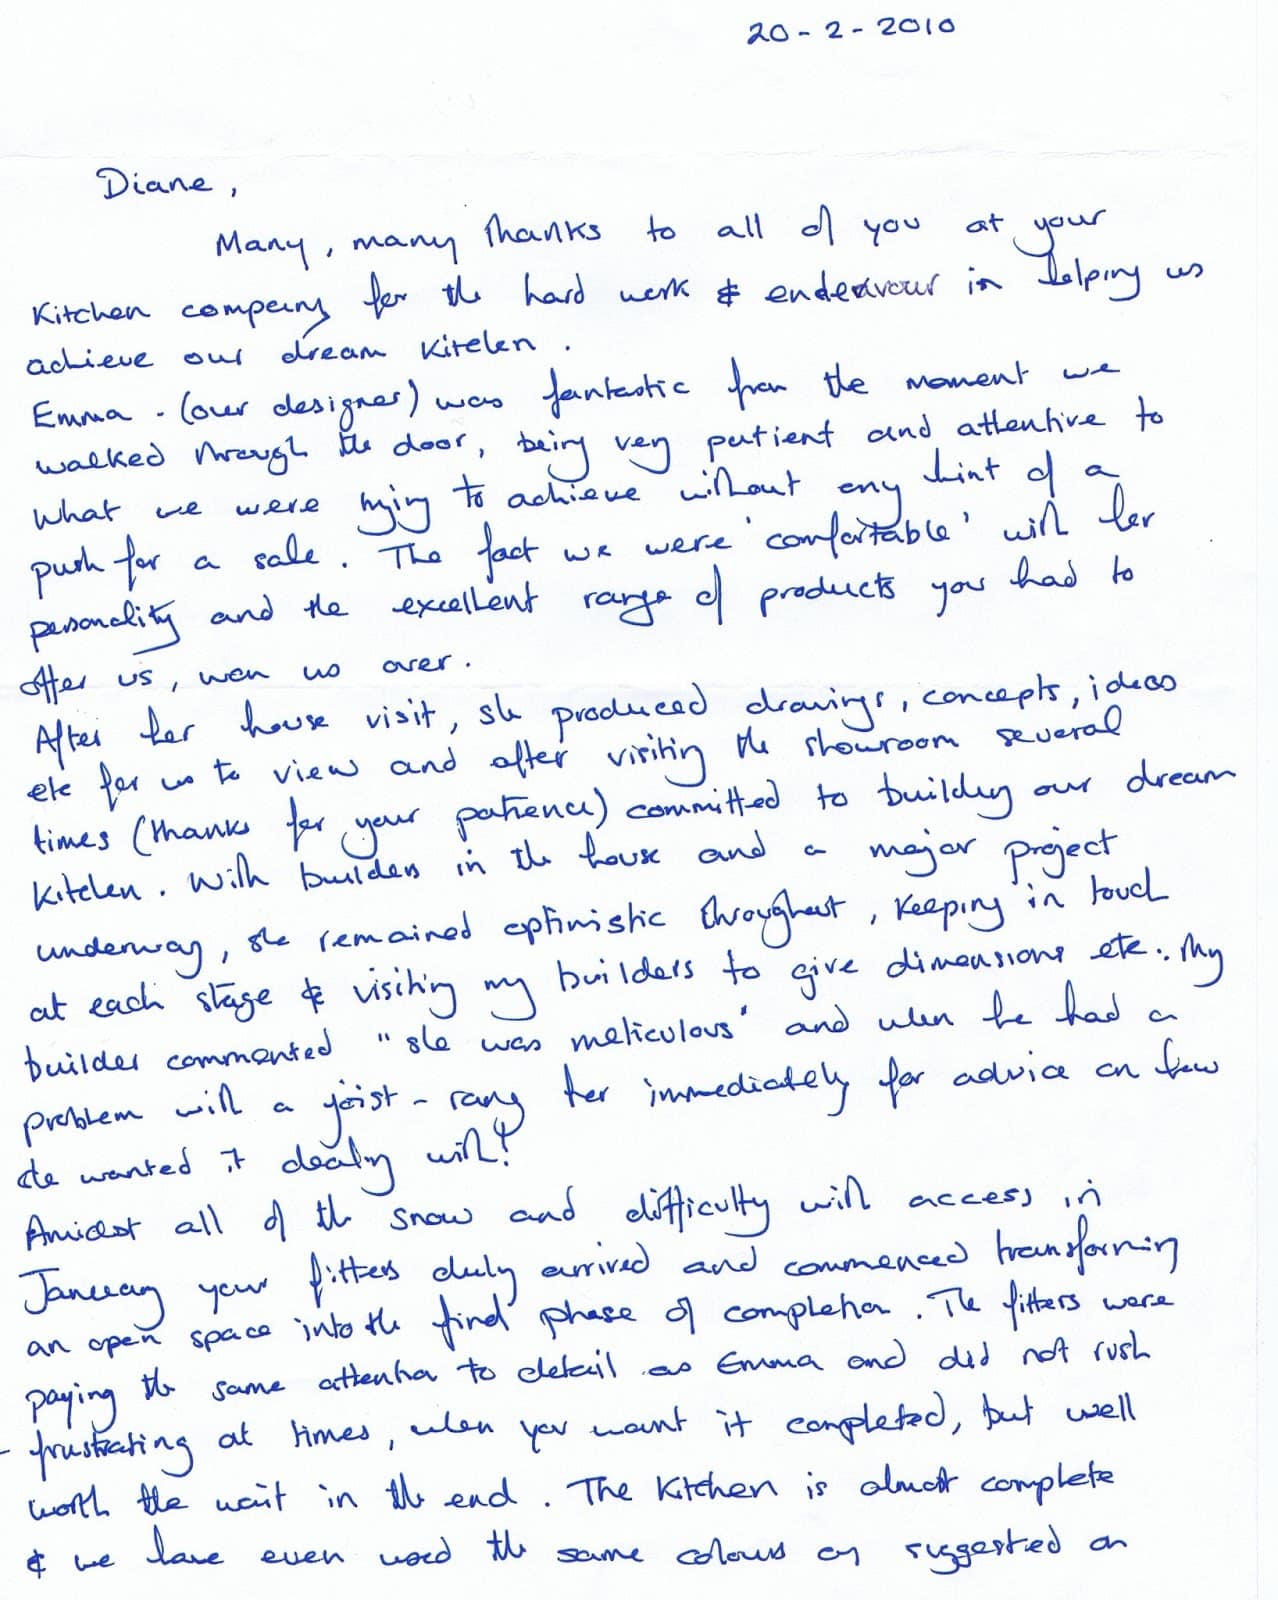 20-2-2010
Diane,
Many, many thanks to all of you at your
Kitchen company for the hard work & endeavour in helping us
achieve our dream kitchen.
Emma - (our designer) was fantastic from the moment we
walked through the door, being very patient and attentive to
what we were trying to achieve without any hint of a
push for a sale. The fact we were 'comfortable' with her
personality and the excellent range of products you had to
offer us, won us over.
After her house visit, she produced drawings, concepts, ideas
etc for us to view and after visiting the showroom several
times (thanks for your patience) committed to building our dream
kitchen. With builders in the house and a major project
underway, she remained optimistic throughout, keeping in touch
at each stage & visiting my builders to give dimensions etc. My
builder commented "she was meticulous" and when he had a
problem with a joist - rang her immediately for advice on how
she wanted it dealing with!
Amidst all of the snow and difficulty with access in
January your fitters duly arrived and commenced transforming
an open space into the final phase of completion. The fitters were
paying the same attention to detail as Emma and did not rush
- frustrating at times, when you want it completed, but well
worth the wait in the end. The kitchen is almost complete
& we have even used the same colours as suggested on